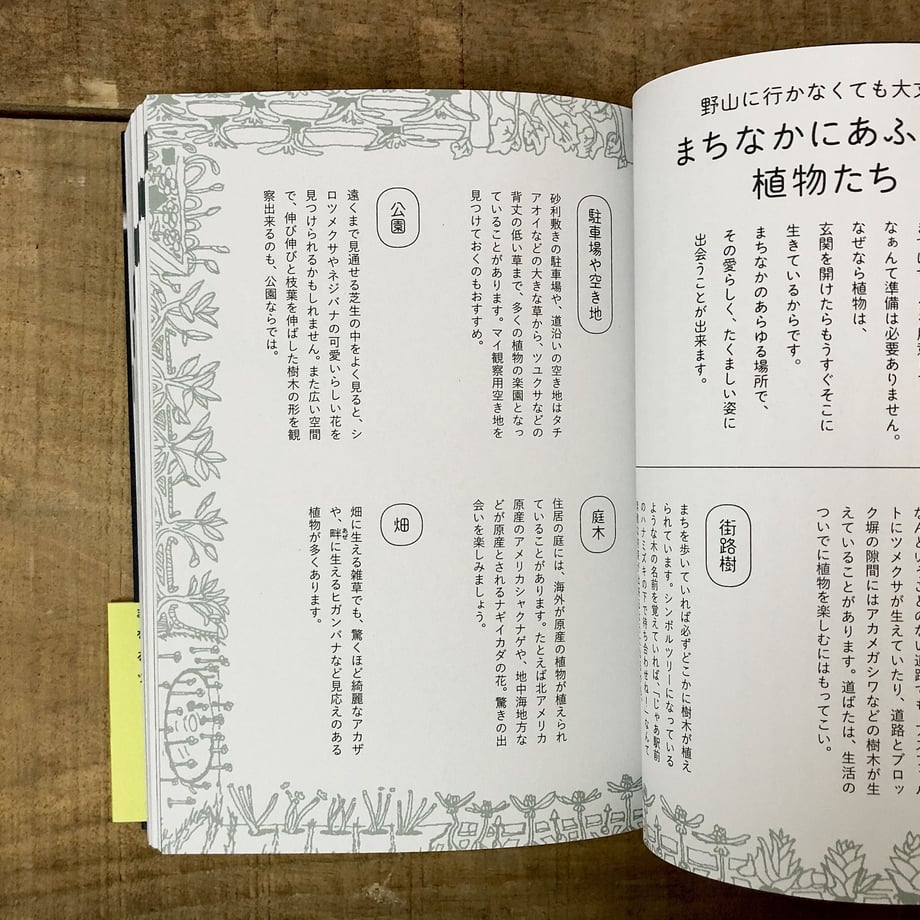 野山に行かなくても大丈
まちなかにあふ
植物たち
なぁんて準備は必要ありません。
なぜなら植物は、
玄関を開けたらもうすぐそこに
生きているからです。
まちなかのあらゆる場所で、
その愛らしく、たくましい姿に
出会うことが出来ます。
トにツメクサが生えていたり、道路とブロッ
ク塀の隙間にはアカメガシワなどの樹木が生
えていることがあります。道ばたは、生活の
ついでに植物を楽しむにはもってこい。
街路樹
まちを歩いていれば必ずどこかに樹木が植え
られています。シンボルツリーになっている
ような木の名前を覚えていれば、「じゃあ駅前
のハナミズキの下で待ち合わせね!」なんて
駐車場や空き地
砂利敷きの駐車場や、道沿いの空き地はタチ
アオイなどの大きな草から、ツユクサなどの
背丈の低い草まで、多くの植物の楽園となっ
ていることがあります。マイ観察用空き地を
見つけておくのもおすすめ。
公園
遠くまで見通せる芝生の中をよく見ると、シ
ロツメクサやネジバナの可愛いらしい花を
見つけられるかもしれません。また広い空間
で、伸び伸びと枝葉を伸ばした樹木の形を観
察出来るのも、公園ならでは。
庭木
住居の庭には、海外が原産の植物が植えられ
ていることがあります。たとえば北アメリカ
原産のアメリカシャクナゲや、地中海地方な
どが原産とされるナギイカダの花。驚きの出
会いを楽しみましょう。
畑
畑に生える雑草でも、驚くほど綺麗なアカザ
や、畔に生えるヒガンバナなど見応えのある
あぜ
植物が多くあります。